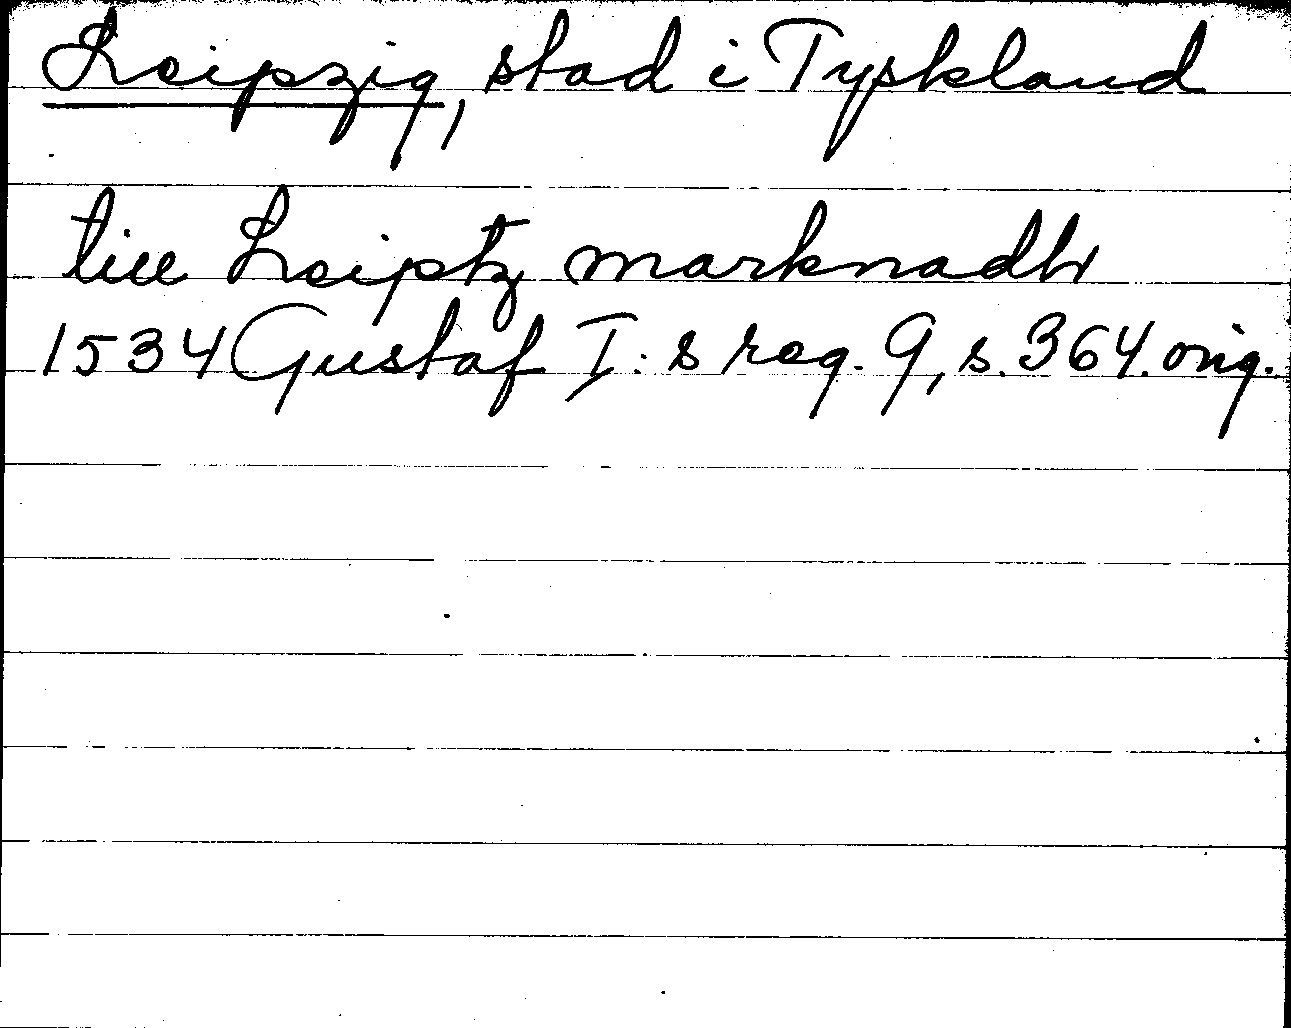 Leipzig, stad i Tyskland
till Leiptz marknadh
1534 Gustaf I:s reg. 9, s. 364. orig.